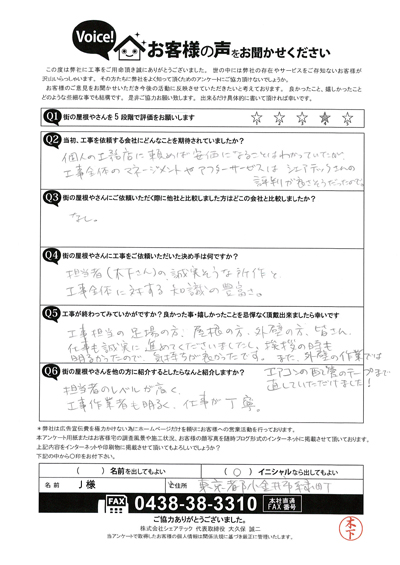 Voice!
お客様の声をお聞かせください
この度は弊社に工事をご用命頂き誠にありがとうございました。世の中には弊社の存在やサービスをご存知ないお客様が
沢山いらっしゃいます。その方たちに弊社をよく知って頂くためのアンケートにご協力頂けないでしょうか。
お客様のご意見をお聞かせいただき今後の活動に反映させていただきたいと考えております。良かったこと、嬉しかったこと
どのような些細な事でも結構です。是非ご協力お願い致します。出来るだけ具体的に書いて頂ければ幸いです。
Q1 街の屋根やさんを5段階で評価をお願いします
☆ ☆ ☆ ★ ☆
Q2 当初、工事を依頼する会社にどんなことを期待されていましたか?
個人の工務店に頼めば安価になることはわかっていたが、
工事全体のマネージメントやアフターサービスは シェアテックさんの
評判が良さそうだったので。
Q3 街の屋根やさんにご依頼いただく際に他社と比較しました方はどこの会社と比較しましたか?
なし。
Q4 街の屋根やさんに工事をご依頼いただいた決め手は何ですか?
担当者(木下さん)の誠実そうな所作と、
工事全体に対する知識の豊富さ。
Q5 工事が終わってみていかがですか?良かった事・嬉しかったことを忌憚なく頂戴出来ましたら幸いです
工事担当の足場の方、屋根の方、外壁の方、皆さん、
仕事も誠実に進めてくださいましたし、挨拶の時も
明るかったので、気持ちが良かったです。また、外壁の作業では
エアコンの配管のテープまで
直していただけました!
Q6 街の屋根やさんを他の方に紹介するとしたらなんと紹介しますか?
担当者のレベルが高く、
工事作業者も明るく、仕事が丁寧。
*弊社は広告宣伝費を極力かけない為にホームページだけを頼りにお客様への営業活動を行っております。
本アンケート用紙またはお客様宅の調査風景や施工状況、お客様の顔写真を随時ブログ形式のインターネットに掲載させて頂いております。
上記内容をインターネットや印刷物に掲載させて頂いてもよろしいでしょうか?
下記の中から○印をお付け下さい。
( ) 名前を出してもよい
( ○ ) イニシャルなら出してもよい
名前 J様
ご住所 東京都小金井市緑町
FAX 0438-38-3310 本社直通 FAX番号
ご協力ありがとうございました。
株式会社シェアテック 代表取締役 大久保 誠二
当アンケートで取得したお客様の個人情報は関係法規に基づき厳正に管理いたします。
木下